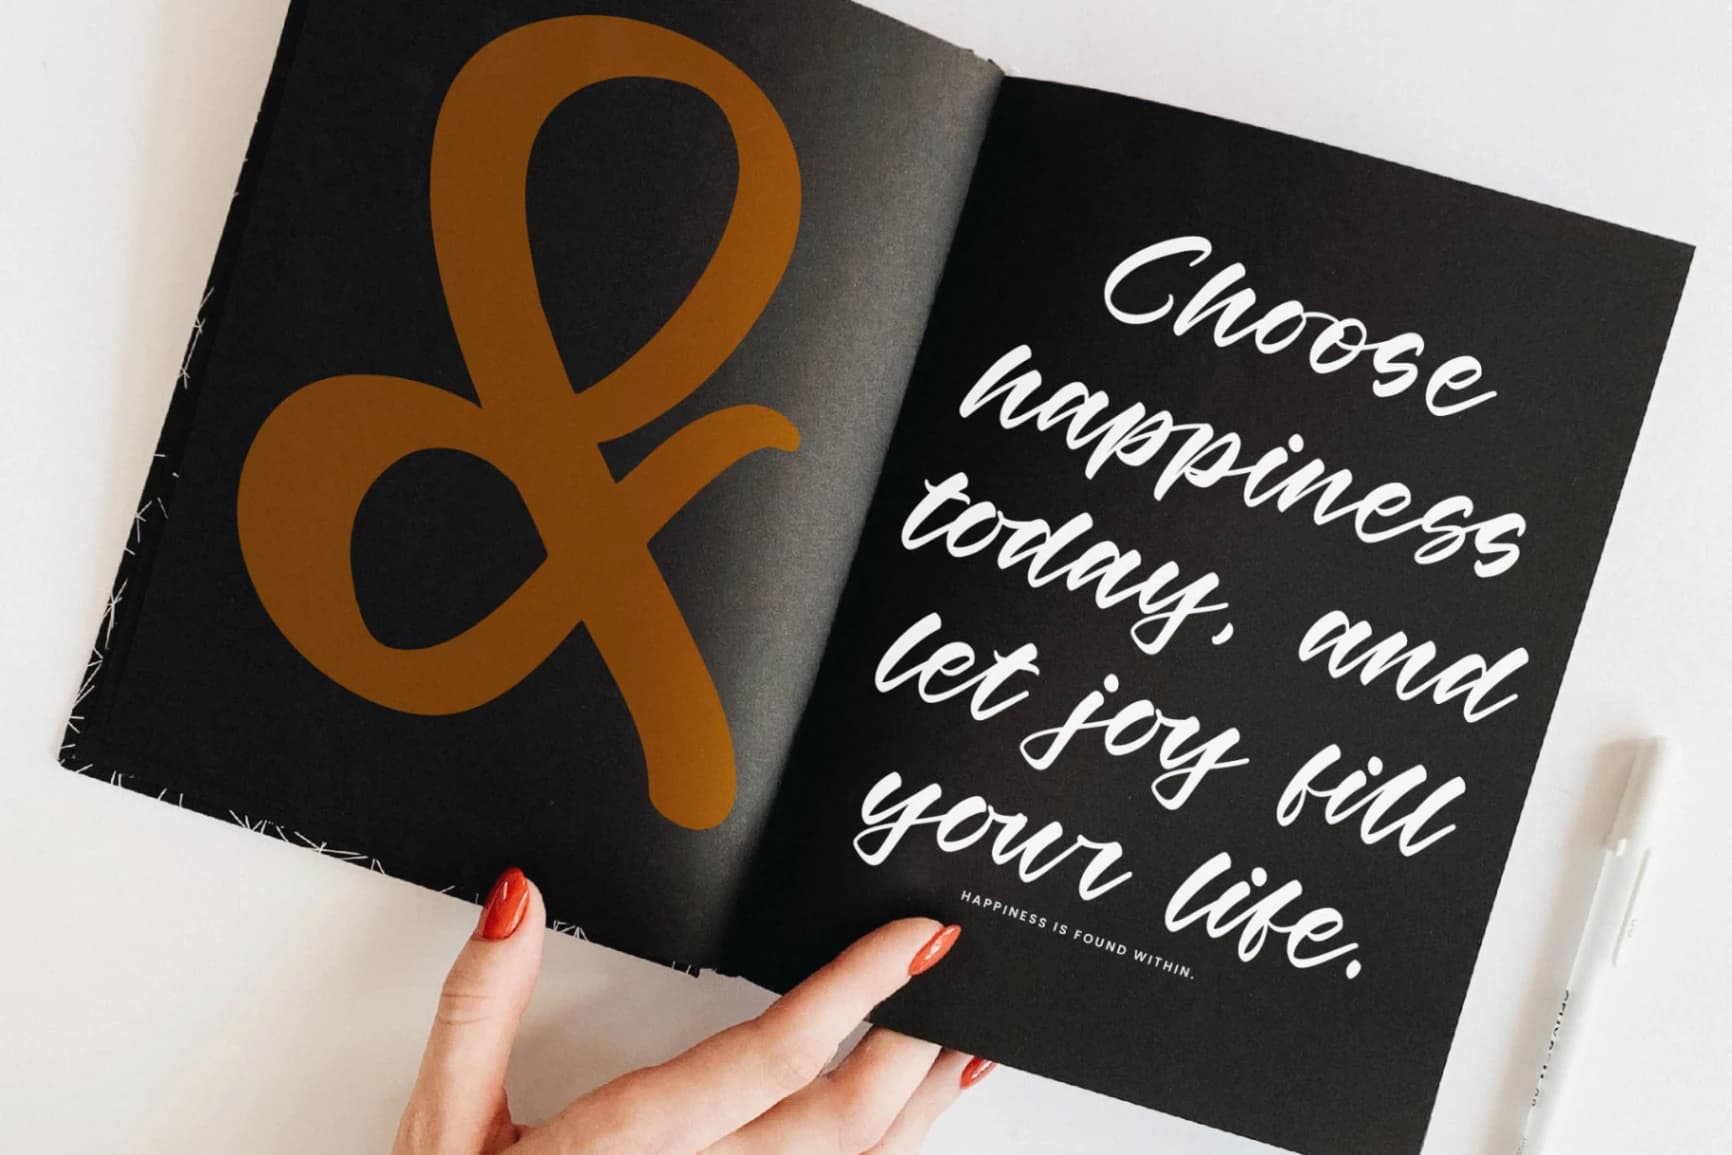 &
Choose
happiness
today, and
let joy fill
your life.
HAPPINESS IS FOUND WITHIN.